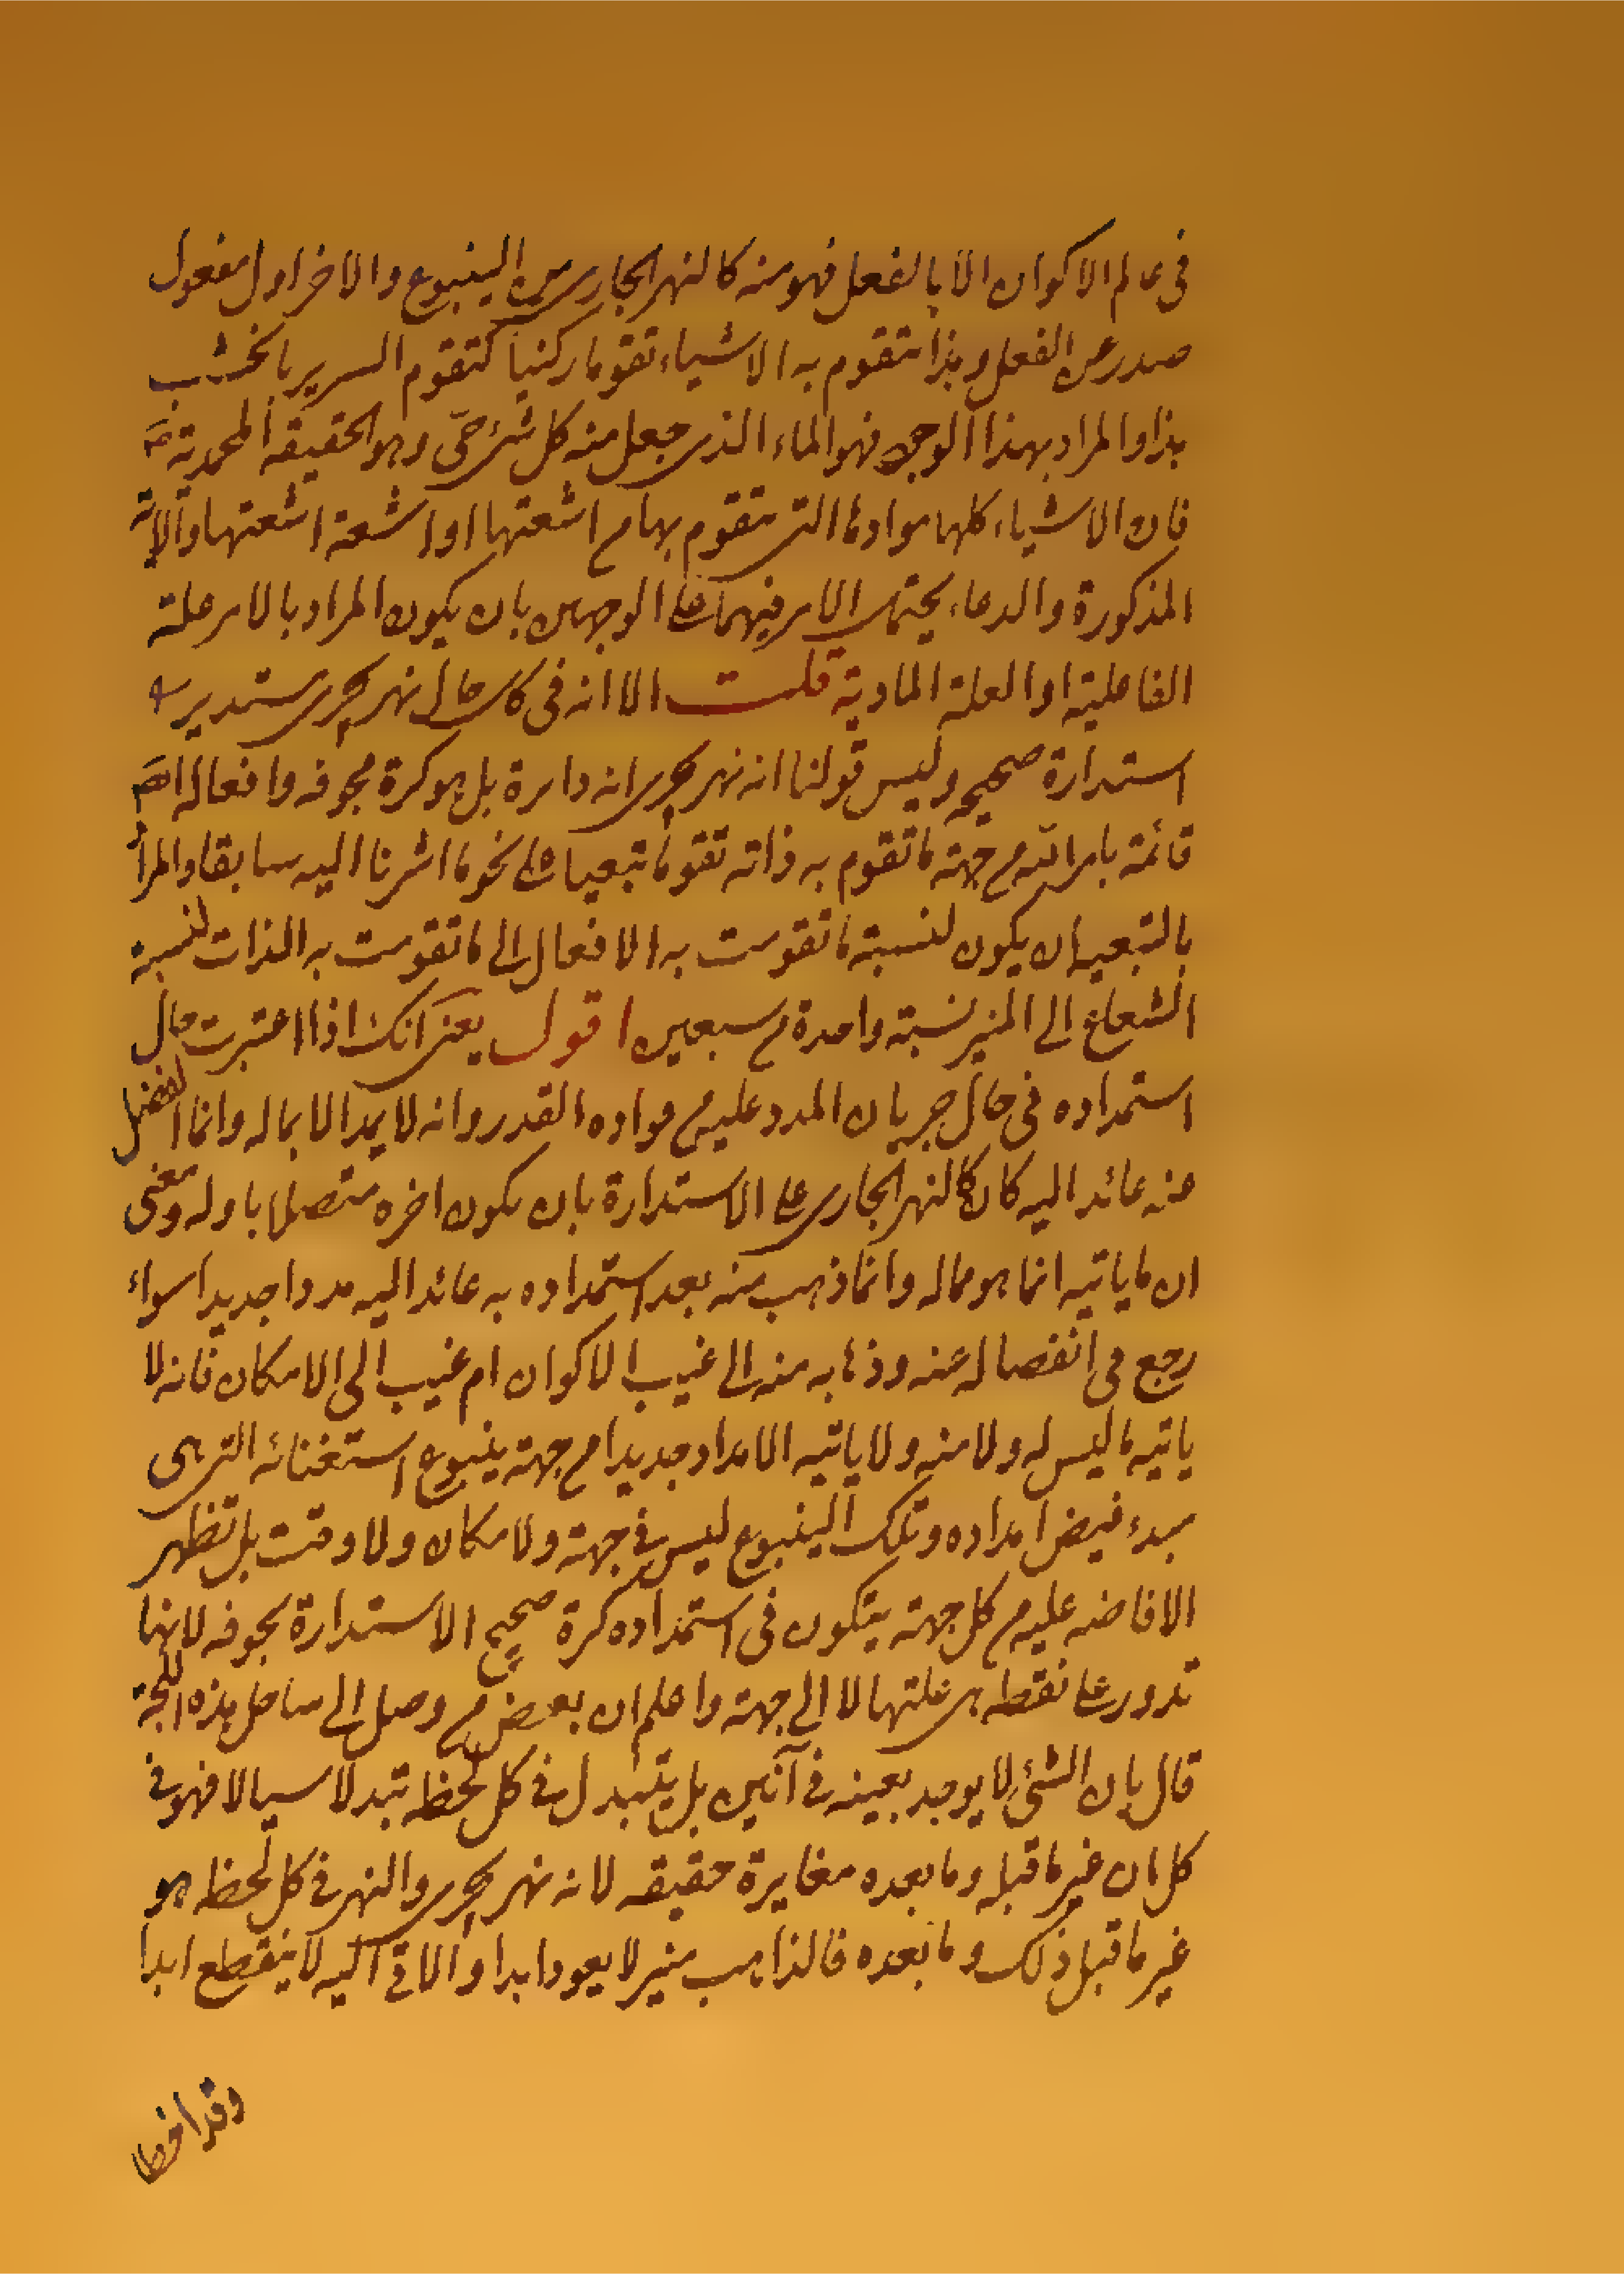 في عالم الاكوان الا بالفعل فهو منه كالنهر الجاري من الينبوع والاخر اول مفعول
صدر عن الفعل وبذا تتقوم به الاشياء تقوما ركنيا كتقوم السرير بالخشب
هذا والمراد بهذا الوجه فهو الماء الذي جعل منه كل شئ حي وهو الحقيقه المحمدية ص
فان الاشياء كلها موادها التي تتقوم بها من اشعتها او اشعة اشعتها والاية
المذكورة والدعاء يحتمل الامر فيهما على الوجهين بان يكون المراد بالامر علته
الفاعلية او العلة المادية قلت الا انه في كل حال نهر يجري مستدير
استدارة صحيحه وليس قولنا انه نهر يجري انه دائرة بل هو كرة مجوفه وافعاله ايضا
قائمة بامر الله من جهة ما تقوم به ذاته تقوما تبعيا على نحو ما اشرنا اليه سابقا والمراد
بالتبعيه ان يكون لنسبة ما تقومت به الافعال الى ما تقومت به الذات كنسبة
الشعاع الى المنير نسبة واحدة من سبعين اقول يعني انك اذا اعتبرت حال
استمداده في حال جريان المدد عليه من مواده القدر وانه لا يمد الا بماله وانما انفصل
عنه عائد اليه كان كالنهر الجاري على الاستدارة بان يكون اخره متصلا باوله ومعنى
ان ما ياتيه انما هو مما له وانما ذهب منه بعد استمداده به عائد اليه مددا جديدا سواء
رجع في انفصاله عنه وذهابه منه الى غيب الاكوان ام غيب الى الامكان فانه لا
ياتيه ما ليس له ولا منه ولا ياتيه الا مداد جديدا من جهة ينبوع استغنائه التي هي
مبدء فيض امداده وتلك الينبوع ليس في جهة ولا مكان ولا وقت بل تظهر
الافاضه عليه من كل جهة يتكون في استمداده كرة صحيح الاستدارة مجوفه لانها
تدور على نقطه هي علتها لا الى جهة واعلم ان بعض من وصل الى ساحل هذه اللجة
قال بان الشئ لا يوجد بعينه في آنين بل يتبدل في كل لحظه تبدلا سيالا فهو في
كل ان غير ما قبله وما بعده مغايرة حقيقه لانه نهر يجري والنهر في كل لحظه هو
غير ما قبل ذلك وما بعده فالذاهب منه لا يعود ابدا والاتي اليه لا ينقطع ابدا